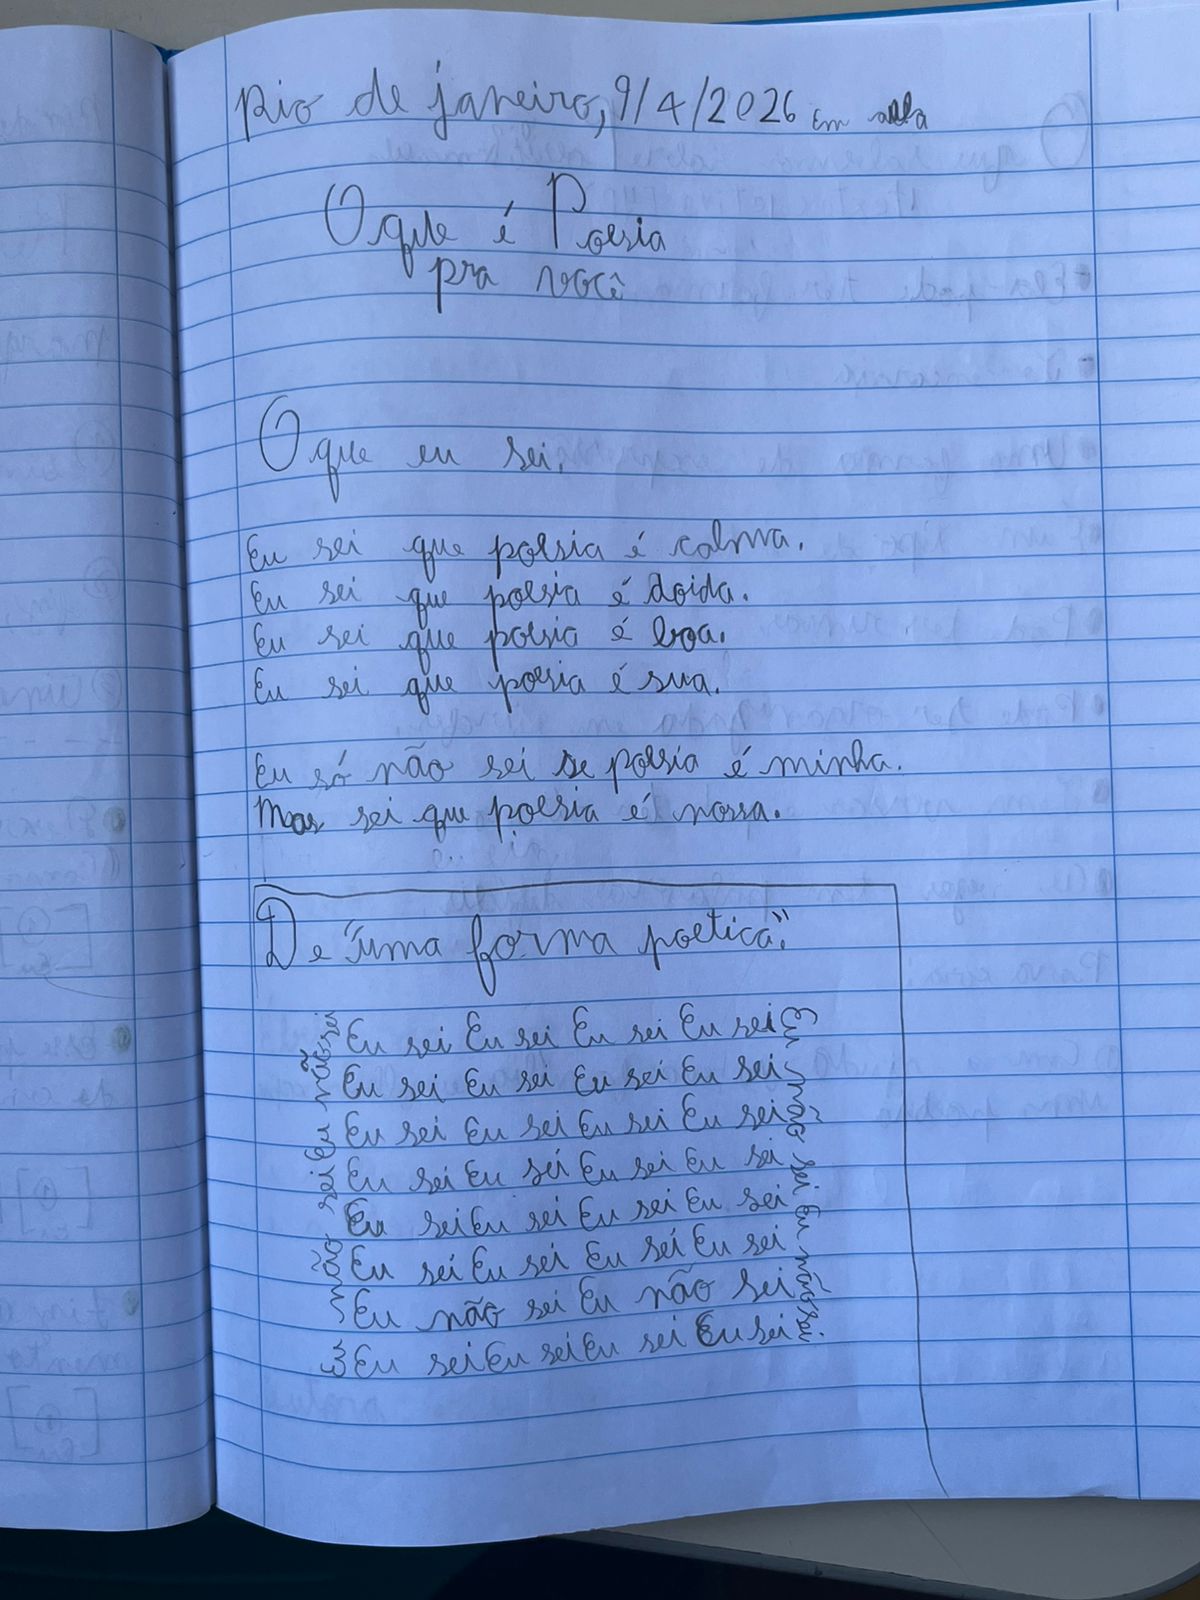 Rio de janeiro, 9/4/2026 Em aula
O que é Poesia
pra você
O que eu sei.
Eu sei que poesia é calma.
Eu sei que poesia é doida.
Eu sei que poesia é boa.
Eu sei que poesia é sua.
Eu só não sei se poesia é minha.
Mas sei que poesia é nossa.
De "uma forma poetica."
Eu não sei Eu não sei
Eu sei Eu sei Eu sei Eu sei
Eu sei Eu sei Eu sei Eu sei
Eu sei Eu sei Eu sei Eu sei
Eu sei Eu sei Eu sei Eu sei
Eu sei Eu sei Eu sei Eu sei
Eu sei Eu sei Eu sei Eu sei
Eu não sei Eu não sei
Eu sei Eu sei Eu sei Eu sei
Eu não sei Eu não sei.